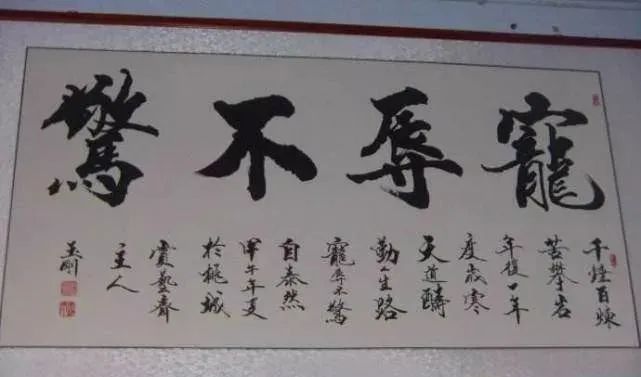 寵辱不驚
千煌百煉
苦攀岩
年復一年
度歲寒
天道酬
勤人生路
寵辱不驚
自泰然
甲午年夏
於桃城
寶藝齋
主人